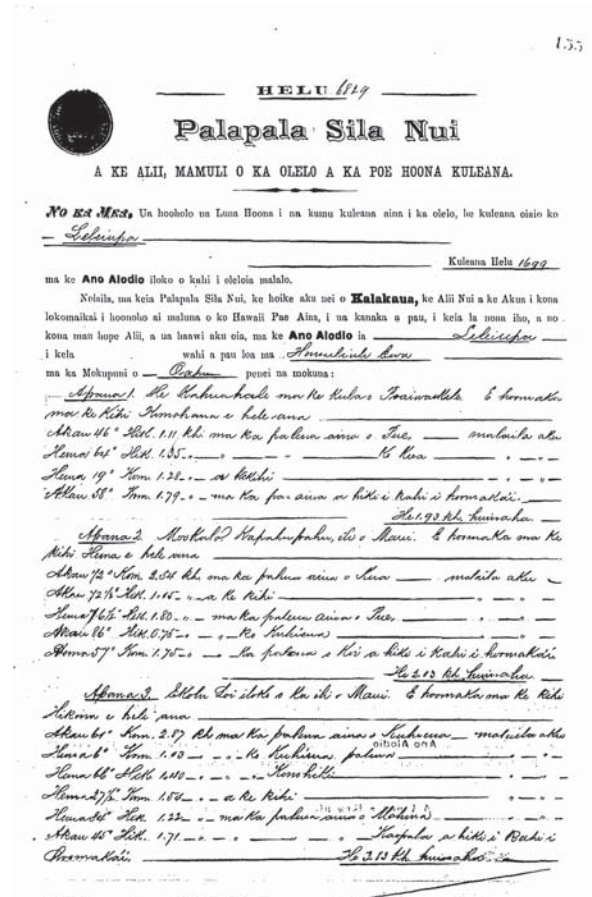 155
HELU 6829
Palapala Sila Nui
A KE ALII, MAMULI O KA OLELO A KA POE HOONA KULEANA.
No ka Mea, Ua hooholo na Luna Hoona i na kumu kuleana aina i ka olelo, he kuleana oiaio ko
Leleiupa
Kuleana Helu 1699
ma ke Ano Alodio iloko o kahi i oleloia malalo.
Nolaila, ma keia Palapala Sila Nui, ke hoike aku nei o Kalakaua, ke Alii Nui a ke Akua i kona
lokomaikai i hoonoho ai maluna o ko Hawaii Pae Aina, i na kanaka a pau, i keia la nona iho, a no
kona mau hope Alii, a ua haawi aku oia, ma ke Ano Alodio ia Leleiupa
i kela wahi a pau loa ma Honouliuli Ewa
ma ka Mokupuni o Oahu penei na mokuna:
Apana 1. He Kahuahale ma ke kula o E hoomaka
ma ke Kihi Komohana e hele ana
Akau 46° Hik. 1.11 kh ma ka palena aina o malaila aku
Hema 64° Hik. 1.35 Ke
Hema 19° Kom. 1.28 a Kekihi
Akau 58° Kom. 1.79 ma ka aina a hiki i kahi i hoomakai.
He 1.93 kh. huinaha.
Apana 2. Mookalo Kapahupahu, ili o Maui. E hoomaka ma ke
kihi Hema e hele ana
Akau 72° Kom. 2.54 kh. ma ka palena aina o malaila aku
Akau 72½° Hik. a ke kihi
Hema 76½° Hik. 1.80 ma ka palena aina o
Akau 86° Hik. 0.75 ko Kuhiena
Hema 57° Kom. 1.75 Ka palena o a hiki i Kahi i hoomakai
He 2.13 kh. huinaha.
Apana 3. Ekolu Loi iloko o Ka ili o Maui. E hoomaka ma ke kihi
Hikina e hele ana
Akau 60° Kom. 2.87 kh ma ka palena aina o Kuhiena malaila aku
Ano Alodio
Hema 6° Kom. 1.03 Ke Kuhiena palena
Hema 66° Hik. 1.40 Konohiki
Hema 27½° Kom. 1.54 a ke kihi
Hema 84° Hik. 1.22 ma ka palena aina o Mahuna
Akau 45° Hik. 1.71 Kaipala a hiki i Kahi i
hoomakai. He 2.13 kh. huinaha